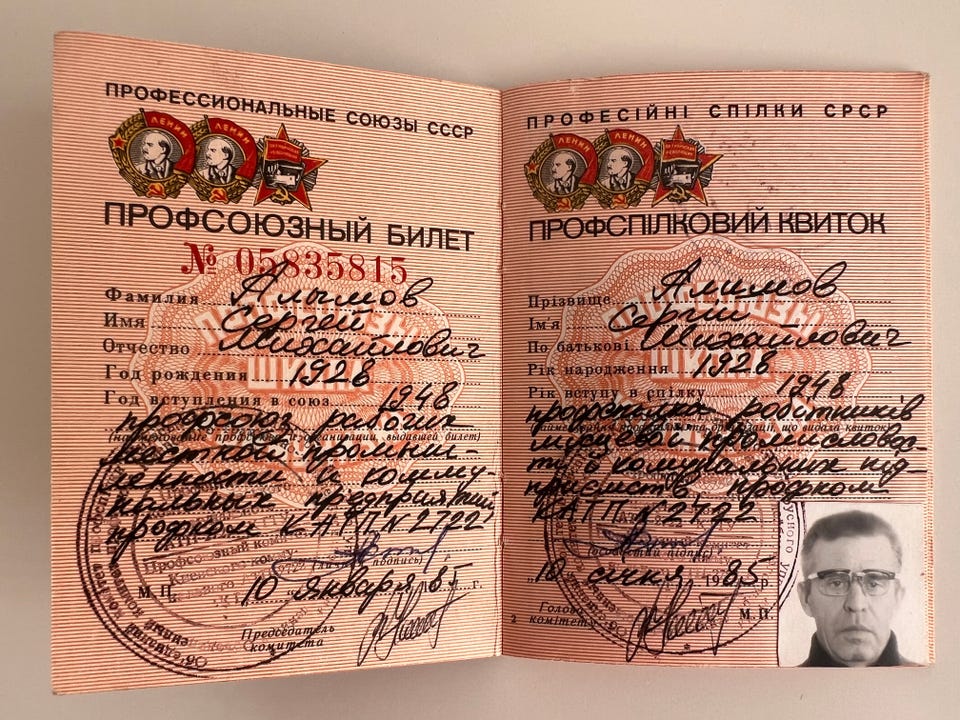 ПРОФЕССИОНАЛЬНЫЕ СОЮЗЫ СССР
ЛЕНИН ЛЕНИН
ПРОФСОЮЗНЫЙ БИЛЕТ
№ 05835815
Фамилия Алымов
Имя Сергей
Отчество Михайлович
Год рождения 1928
Год вступления в союз 1948
профсоюз рабочих
(наименование профсоюза и организации, выдавшей билет)
местной промыш-
ленности и комму-
нальных предприятий,
профком КАТП N 2722
(личная подпись)
М.П. „10 “ января 1985 г.
Председатель
комитета
ПРОФЕСІЙНІ СПІЛКИ СРСР
ЛЕНИН ЛЕНИН
ПРОФСПІЛКОВИЙ КВИТОК
Прізвище Алимов
Ім'я Сергій
По батькові Михайлович
Рік народження 1928
Рік вступу в спілку 1948
профспілка робітників
(найменування профспілки та організації, що видала квиток)
місцевої промисловос-
ті і комунальних під-
приємств, профком
КАТП N 2722
(особистий підпис)
„10 “ січня 1985 р
Голова
комітету
М.П.
2